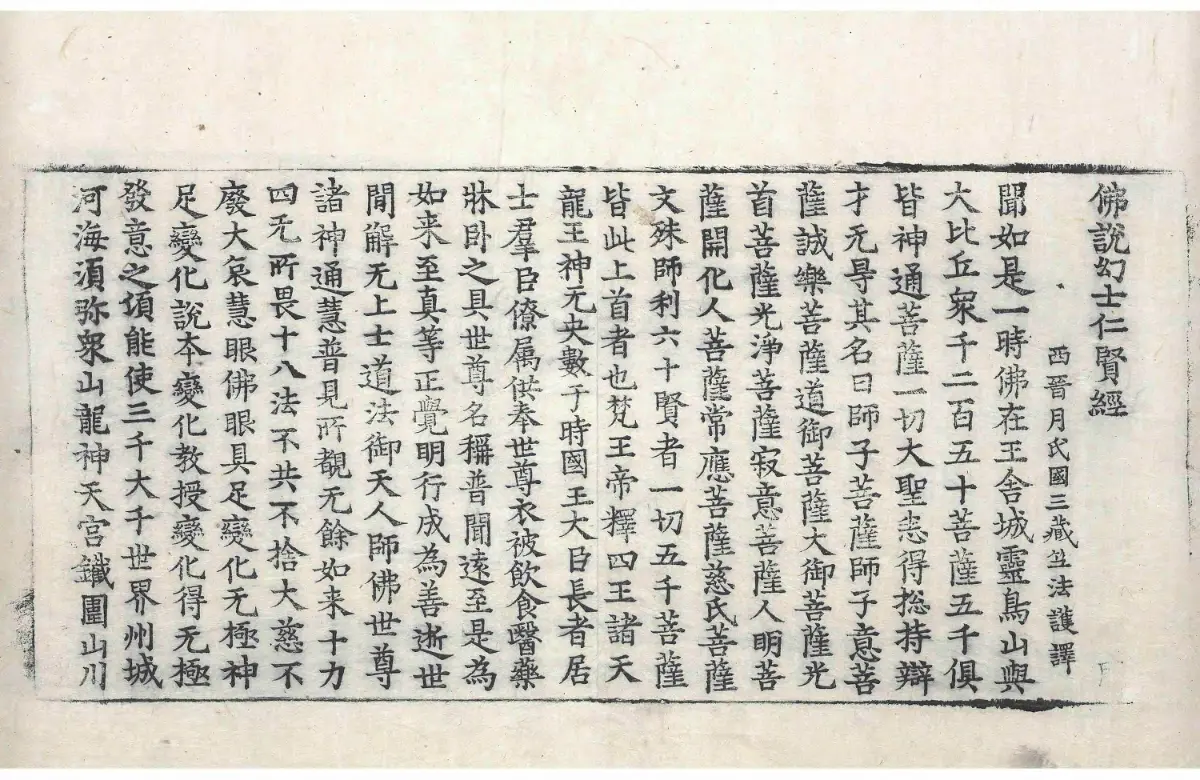 佛說幻士仁賢經
西晉月氏國三藏竺法護譯
聞如是一時佛在王舍城靈鳥山與
大比丘衆千二百五十菩薩五千俱
皆神通菩薩一切大聖悉得揔持辯
才无㝵其名曰師子菩薩師子意菩
薩誠樂菩薩道御菩薩大御菩薩光
首菩薩光淨菩薩寂意菩薩人明菩
薩開化人菩薩常應菩薩慈氏菩薩
文殊師利六十賢者一切五千菩薩
皆此上首者也梵王帝釋四王諸天
龍王神无央數于時國王大臣長者居
士羣臣僚属供奉世尊衣被飲食醫藥
牀卧之具世尊名稱普聞遠至是為
如来至真等正覺明行成為善逝世
間解无上士道法御天人師佛世尊
諸神通慧普見所覩无餘如来十力
四无所畏十八法不共不捨大慈不
廢大哀慧眼佛眼具足變化无極神
足變化說本變化教授變化得无極
發意之頃能使三千大千世界州城
河海湏弥衆山龍神天宮鐵圍山川